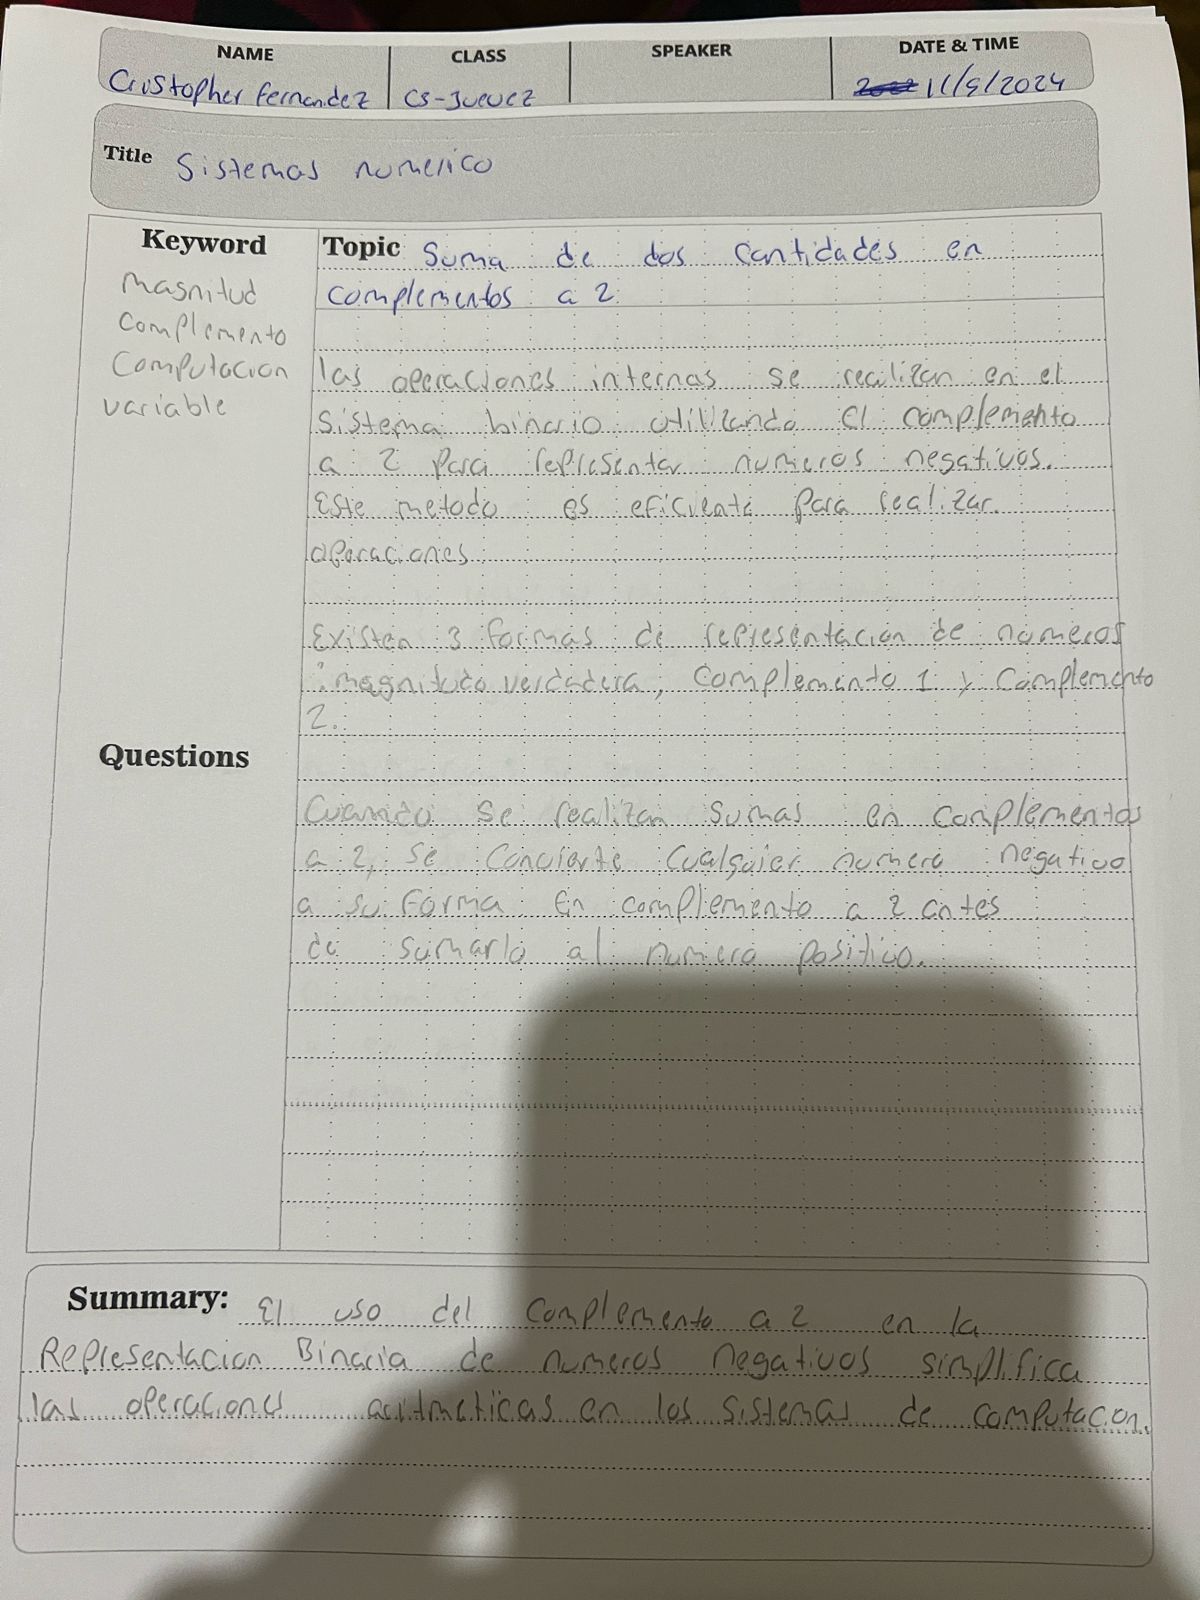 NAME
CLASS
SPEAKER
DATE & TIME
Cristopher Fernandez
CS-Juevez
11/9/2024
Title Sistemas numerico
Keyword
Magnitud
Complemento
Computacion
variable
Topic Suma de dos cantidades en
complementos a 2.
las operaciones internas se realizan en el
sistema binario utilizando el complemento
a 2 para representar numeros negativos.
Este metodo es eficiente para realizar
operaciones.
Existen 3 formas de representacion de numeros
: magnitud verdadera, Complemento 1 y Complemento
2.
Questions
Cuando se realizan sumas en complementos
a 2, se convierte cualquier numero negativo
a su forma en complemento a 2 antes
de sumarlo al numero positivo.
Summary: El uso del complemento a 2 en la
Representacion Binaria de numeros negativos simplifica
las operaciones aritmeticas en los sistemas de computacion.